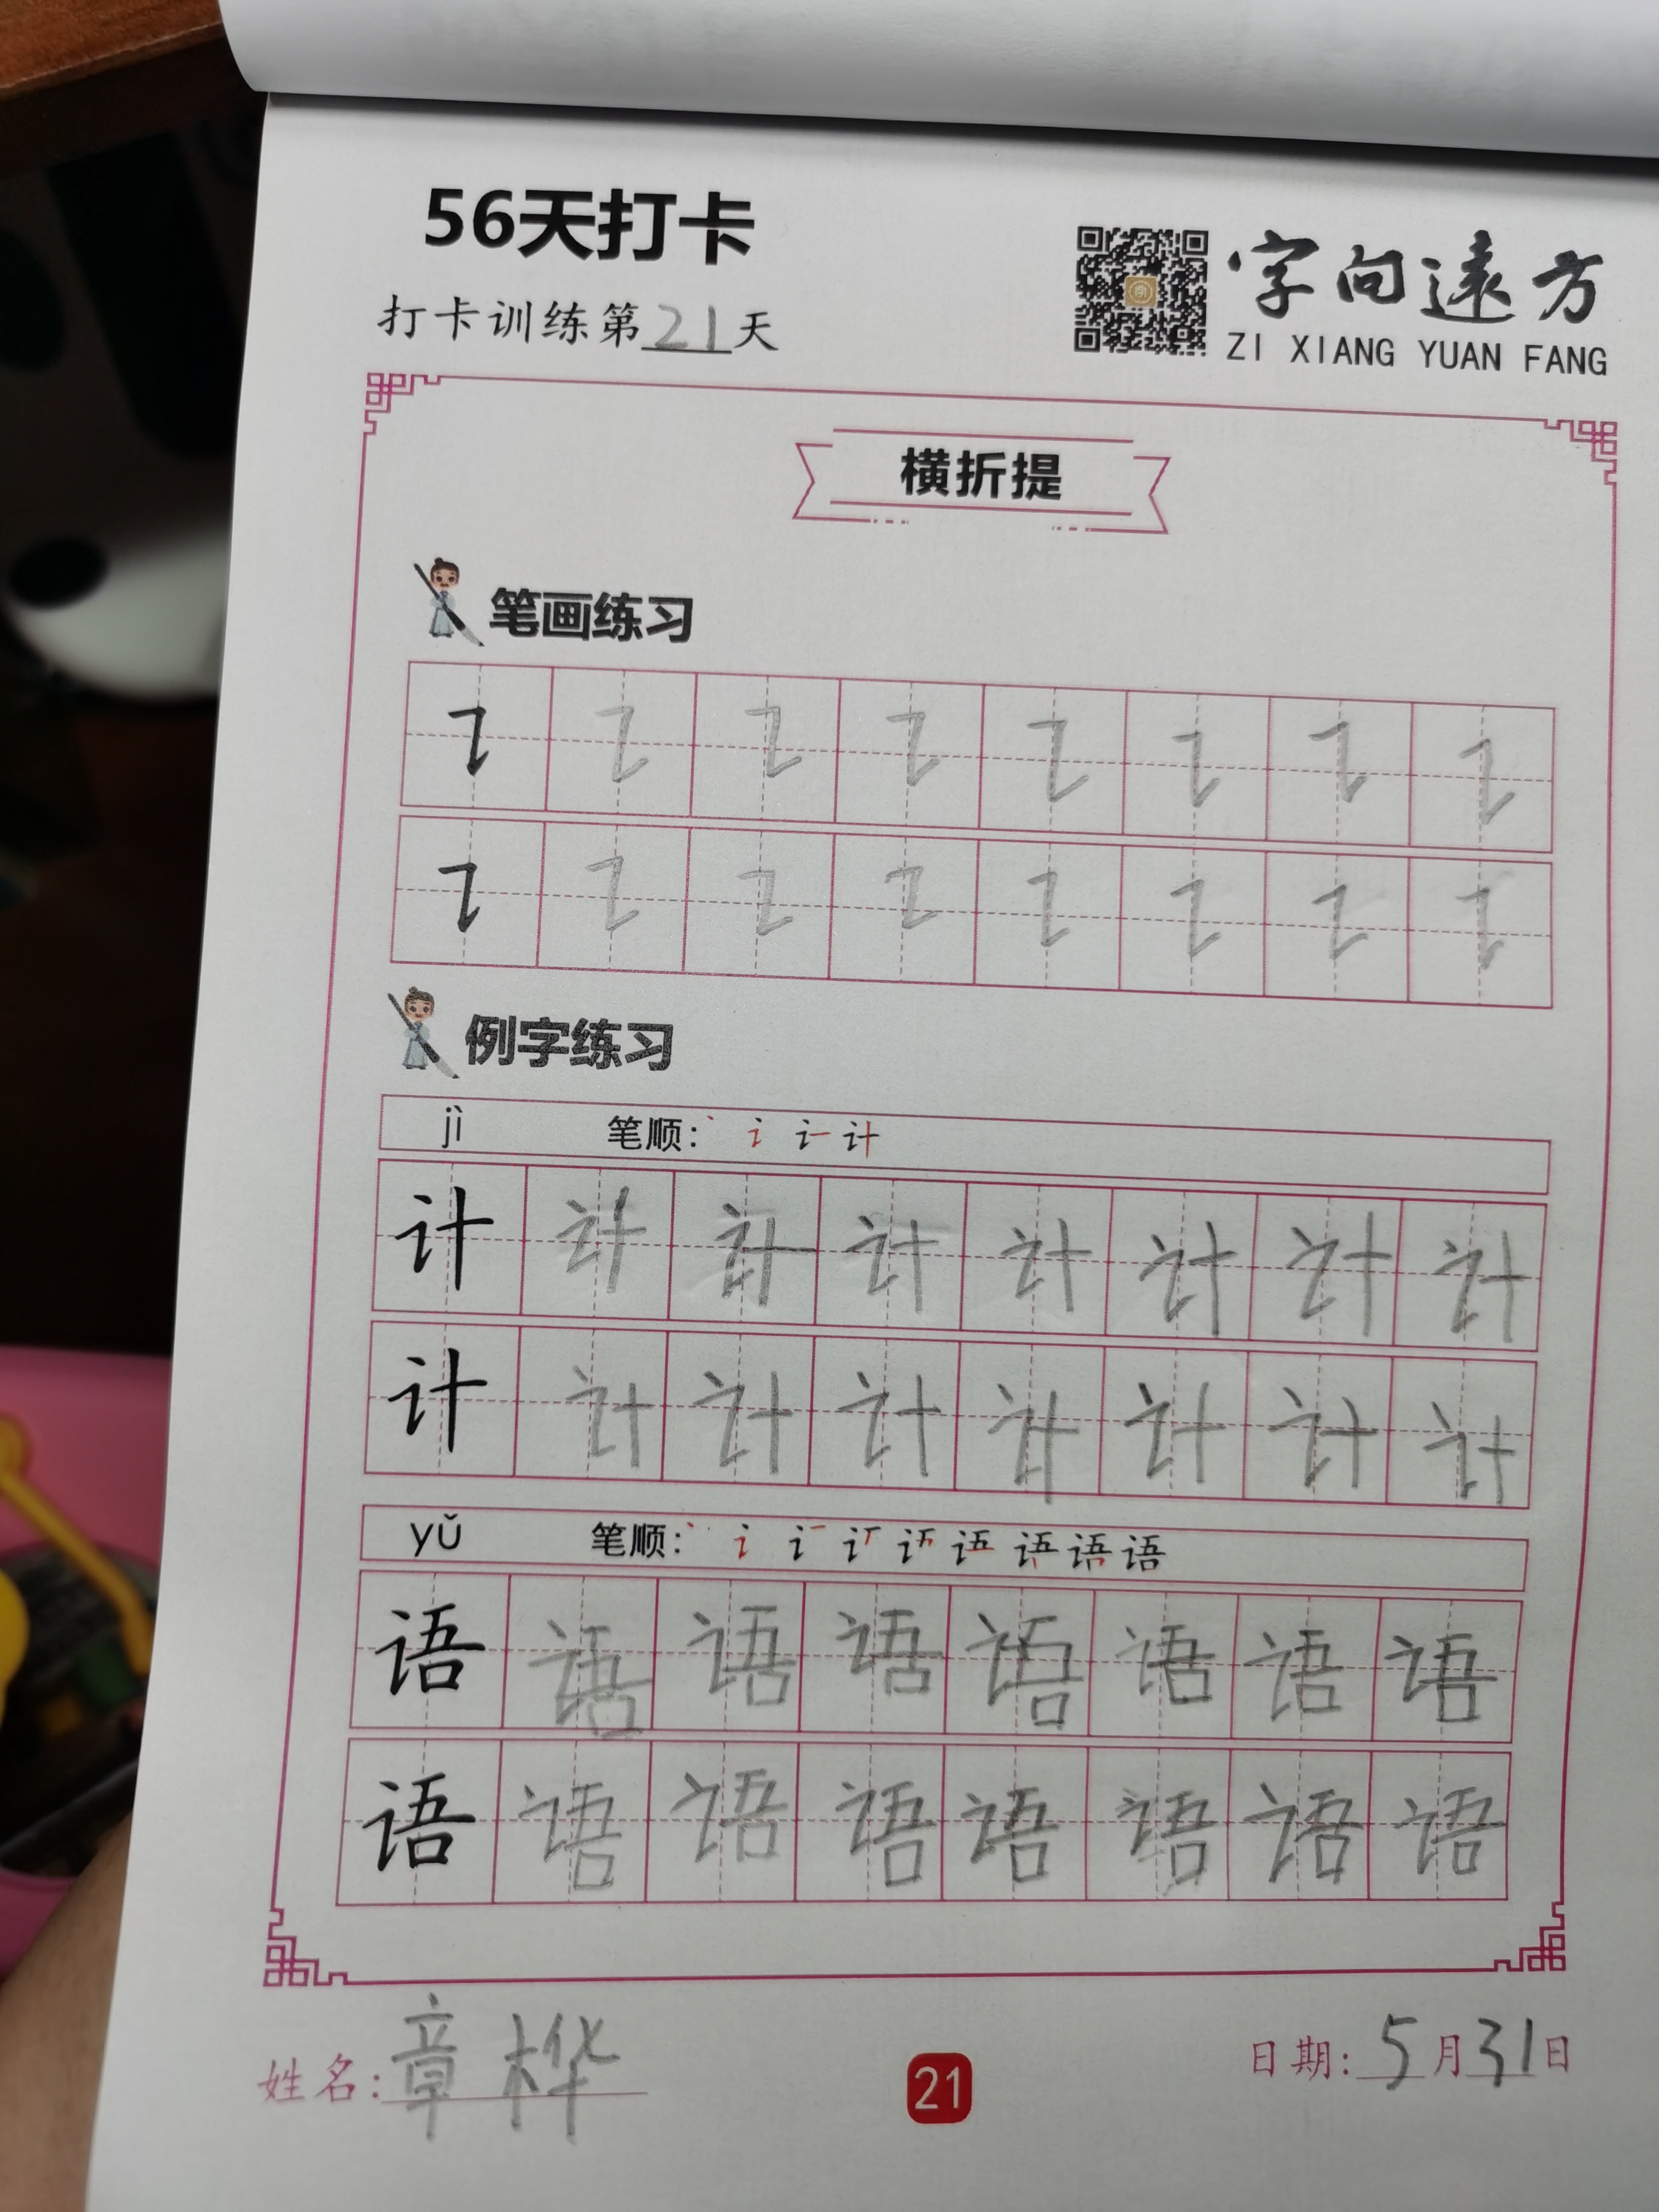 56天打卡
打卡训练第21天
字向遠方
ZI XIANG YUAN FANG
横折提
笔画练习
㇊ ㇊ ㇊ ㇊ ㇊ ㇊ ㇊ ㇊
㇊ ㇊ ㇊ ㇊ ㇊ ㇊ ㇊ ㇊
例字练习
jì 笔顺:
计 计 计 计 计 计 计 计
计 计 计 计 计 计 计 计
yǔ 笔顺:
语 语 语 语 语 语 语 语
语 语 语 语 语 语 语 语
姓名:章桦
21
日期:5月31日